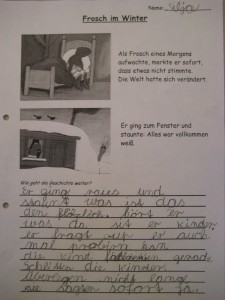 Name: Ilja
Frosch im Winter
Als Frosch eines Morgens
aufwachte, merkte er sofort,
dass etwas nicht stimmte.
Die Welt hatte sich verändert.
Er ging zum Fenster und
staunte: Alles war vollkommen
weiß.
Wie geht die Geschichte weiter?
Er ging raus und
was ist das
den hört er
was da ist er kinder
er fragt er auch
mal probirn kan
die kind
die kinder
nicht lange
sie sagen sofort ja.